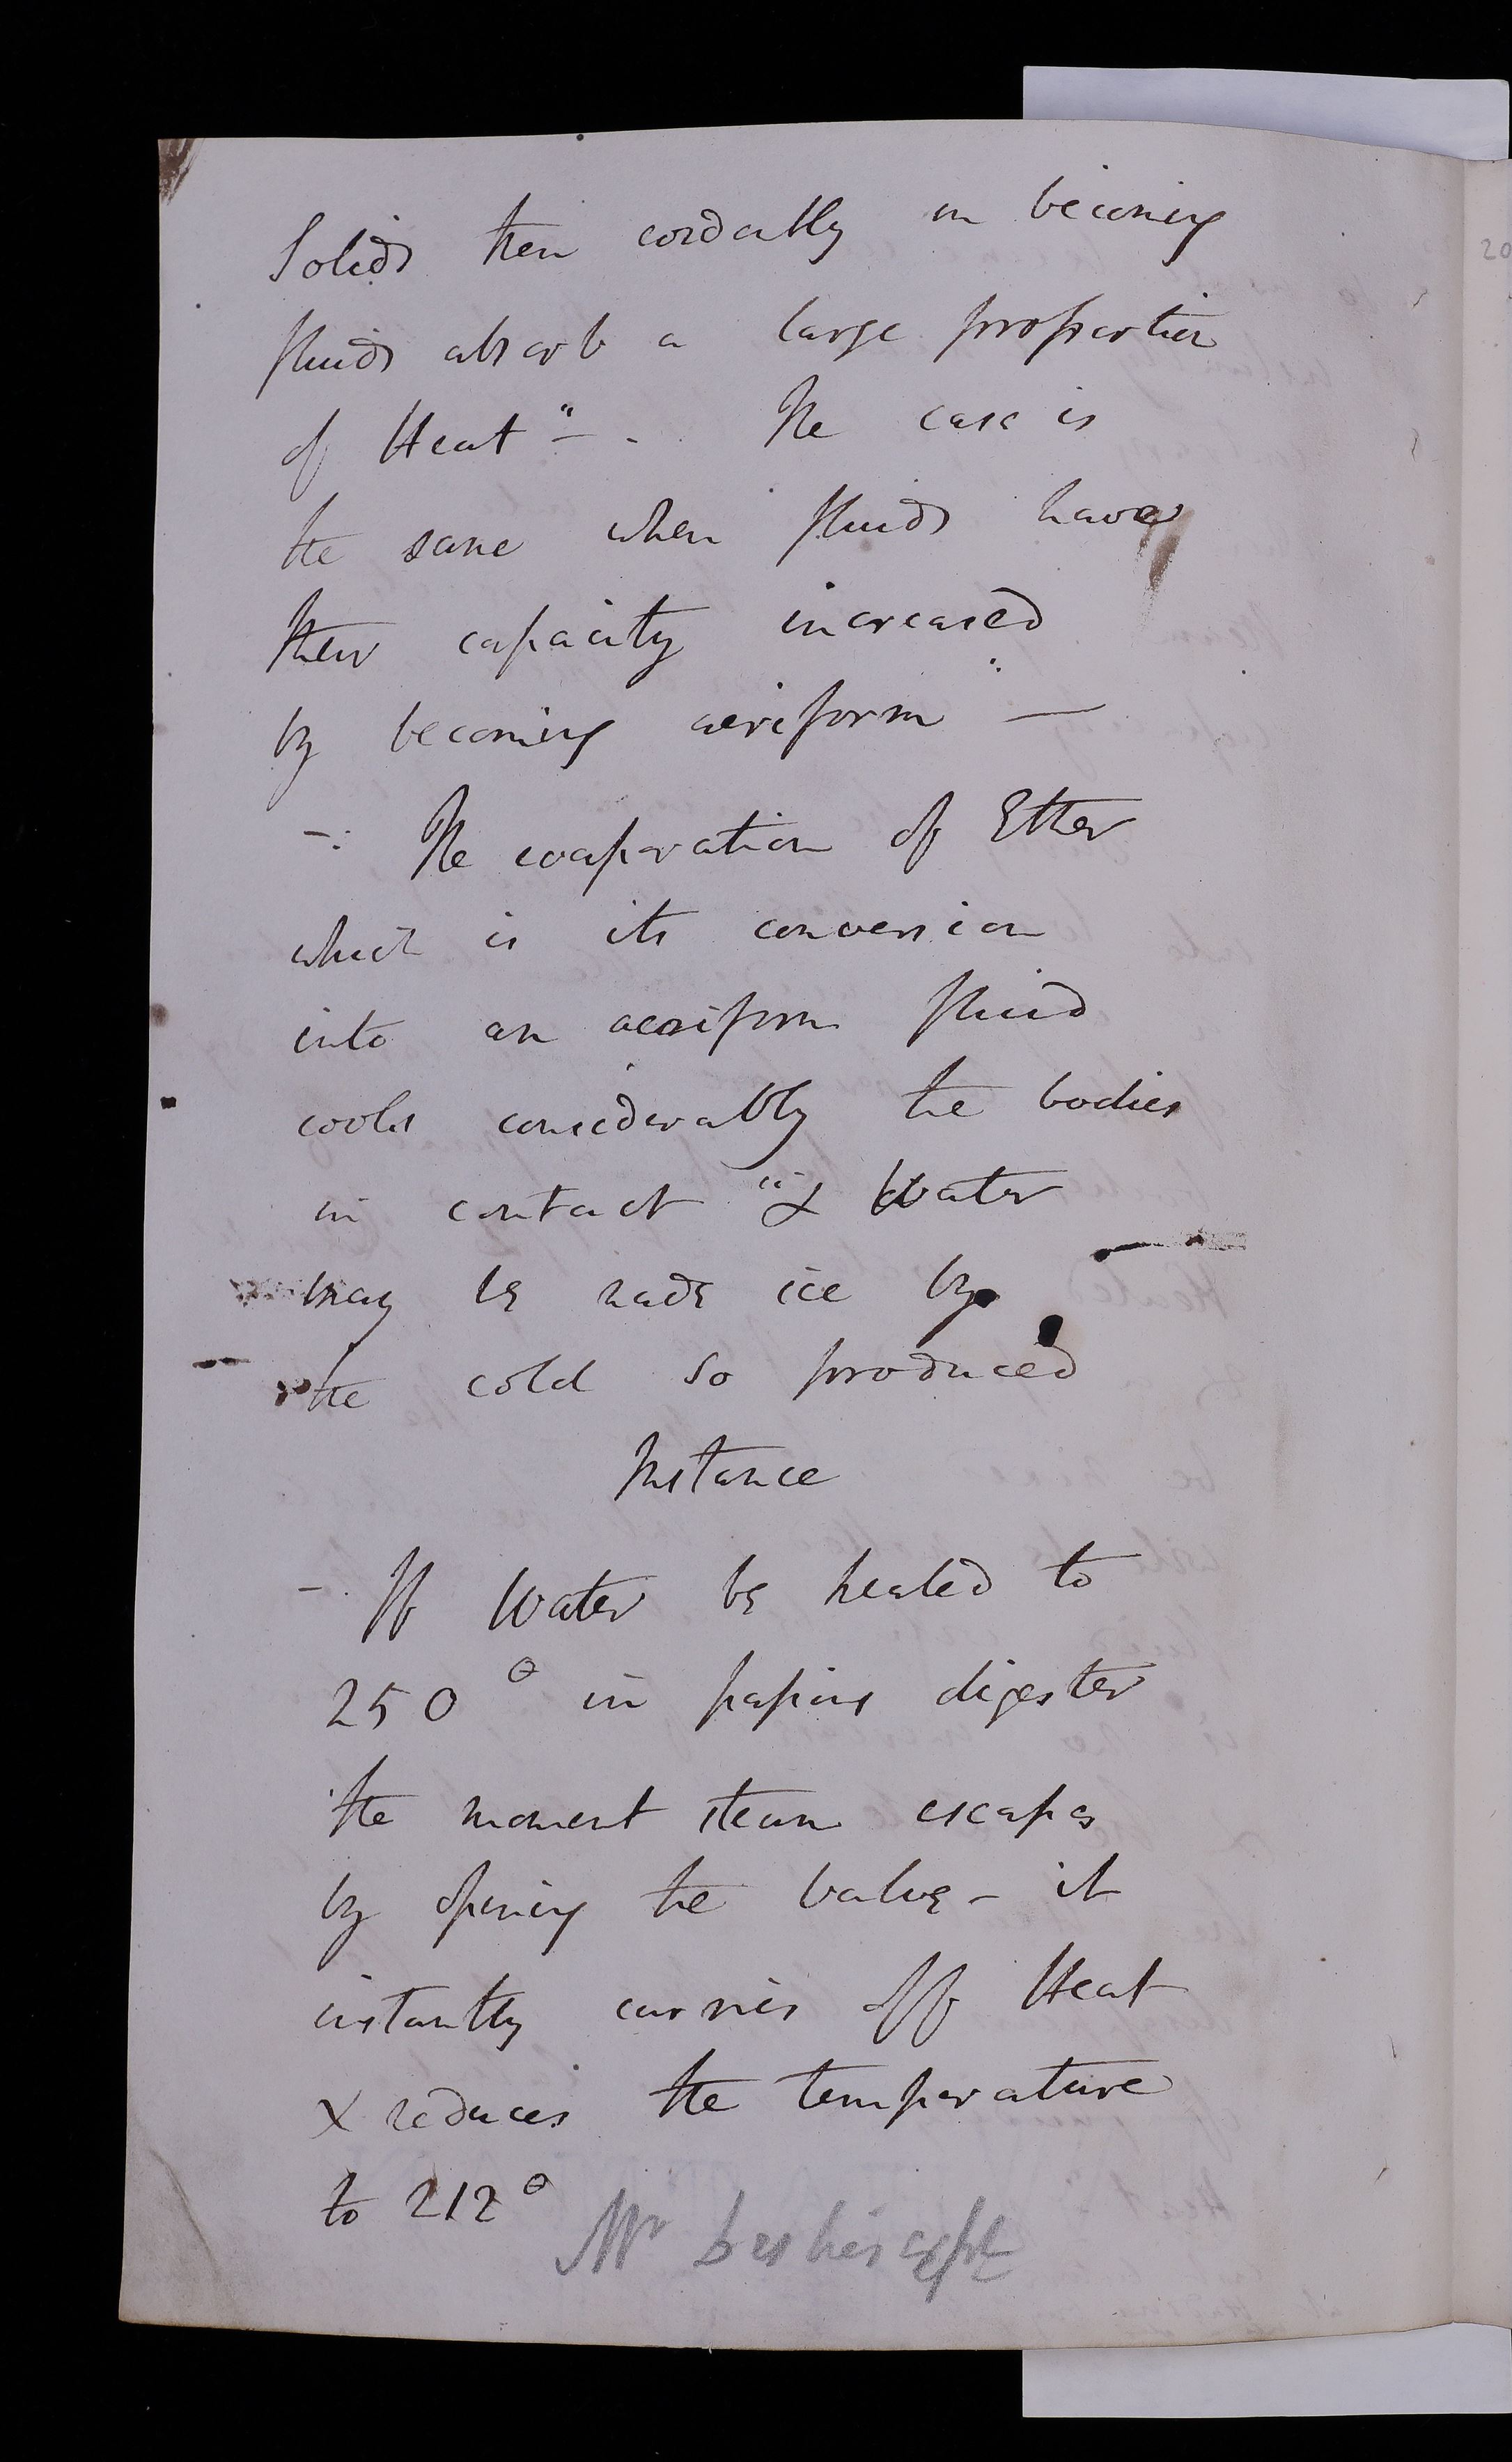 Solids then cordially in becoming
fluids absorb a large proportion
of Heat" — . The case is
the same when fluids have
their capacity increased
by becoming aeriform" —
— : The evaporation of Ether
which is its conversion
into an aeriform fluid
cools considerably the bodies
in contact " & Water
may be made ice by
the cold so produced
Instance
— . If Water be heated to
250° in papins digester
the moment steam escapes
by opening the valve – it
instantly carries off Heat
& reduces the temperature
to 212° Mr Leslies expt